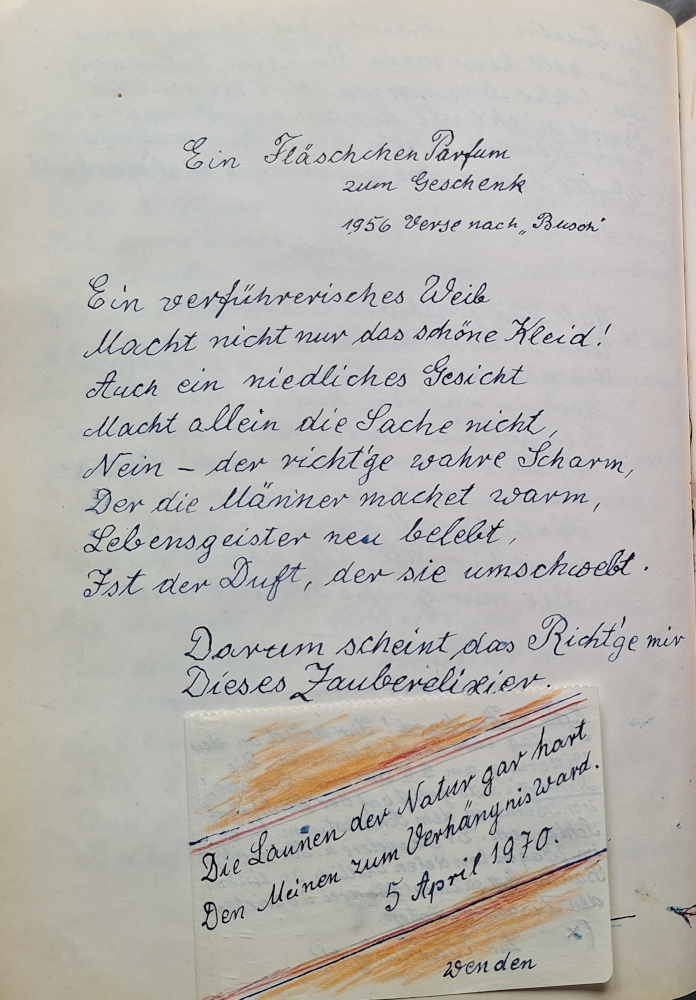 Ein Fläschchen Parfum
zum Geschenk
1956 Verse nach „Busch"
Ein verführerisches Weib
Macht nicht nur das schöne Kleid!
Auch ein niedliches Gesicht
Macht allein die Sache nicht,
Nein – der richt'ge wahre Scharm,
Der die Männer machet warm,
Lebensgeister neu belebt,
Ist der Duft, der sie umschwebt.
Darum scheint das Richt'ge mir
Dieses Zauberelixier.
Die Launen der Natur gar hart
Den Meinen zum Verhängnis ward.
5 April 1970.
wenden